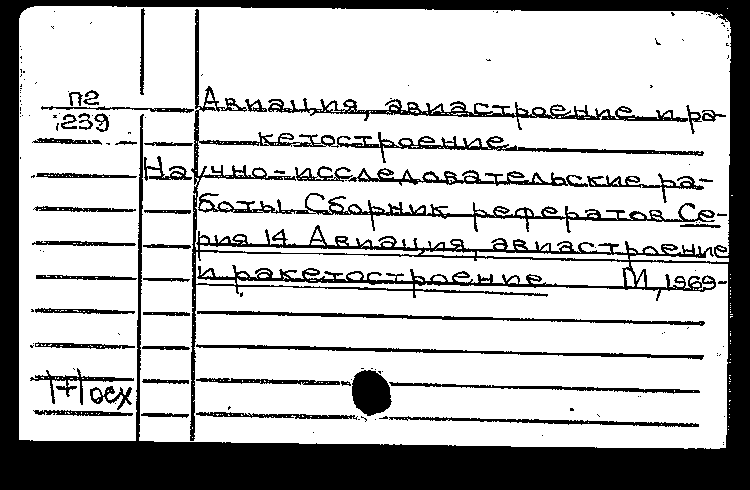 п2
239
Авиация, авиастроение и ра-
кетостроение
Научно-исследовательские ра-
боты. Сборник рефератов. Се-
рия 14. Авиация, авиастроение
и ракетостроение М., 1969-
1+1 осх